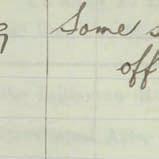 Some
off